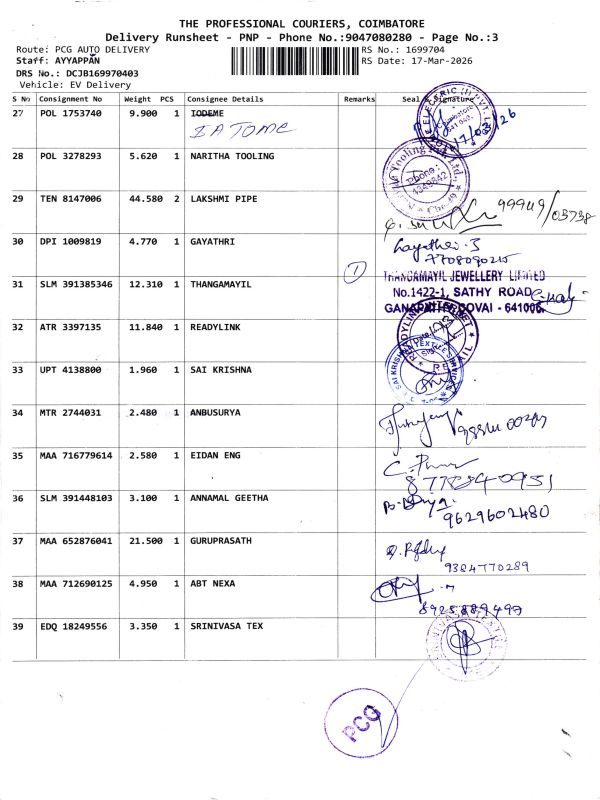 THE PROFESSIONAL COURIERS, COIMBATORE
Delivery Runsheet - PNP - Phone No.:9047080280 - Page No.:3
Route: PCG AUTO DELIVERY
RS No.: 1699704
Staff: AYYAPPAN
RS Date: 17-Mar-2026
DRS No.: DCJB169970403
Vehicle: EV Delivery
S No Consignment No Weight PCS Consignee Details Remarks Seal Signature
27 POL 1753740 9.900 1 IODEME
IATOME
17/03/26
28 POL 3278293 5.620 1 NARITHA TOOLING
Tooling Pvt Ltd.,
Phone:
29 TEN 8147006 44.580 2 LAKSHMI PIPE
30 DPI 1009819 4.770 1 GAYATHRI
Gayathri. S
7708090215
1
31 SLM 391385346 12.310 1 THANGAMAYIL
THANGAMAYIL JEWELLERY LIMITED
No.1422-1, SATHY ROAD
GANAPATHY, COVAI - 641006.
32 ATR 3397135 11.840 1 READYLINK
33 UPT 4138800 1.960 1 SAI KRISHNA
SAI KRISHNA
34 MTR 2744031 2.480 1 ANBUSURYA
35 MAA 716779614 2.580 1 EIDAN ENG
8778840951
36 SLM 391448103 3.100 1 ANNAMAL GEETHA
9629602480
37 MAA 652876041 21.500 1 GURUPRASATH
9384770289
38 MAA 712690125 4.950 1 ABT NEXA
39 EDQ 18249556 3.350 1 SRINIVASA TEX
PCG